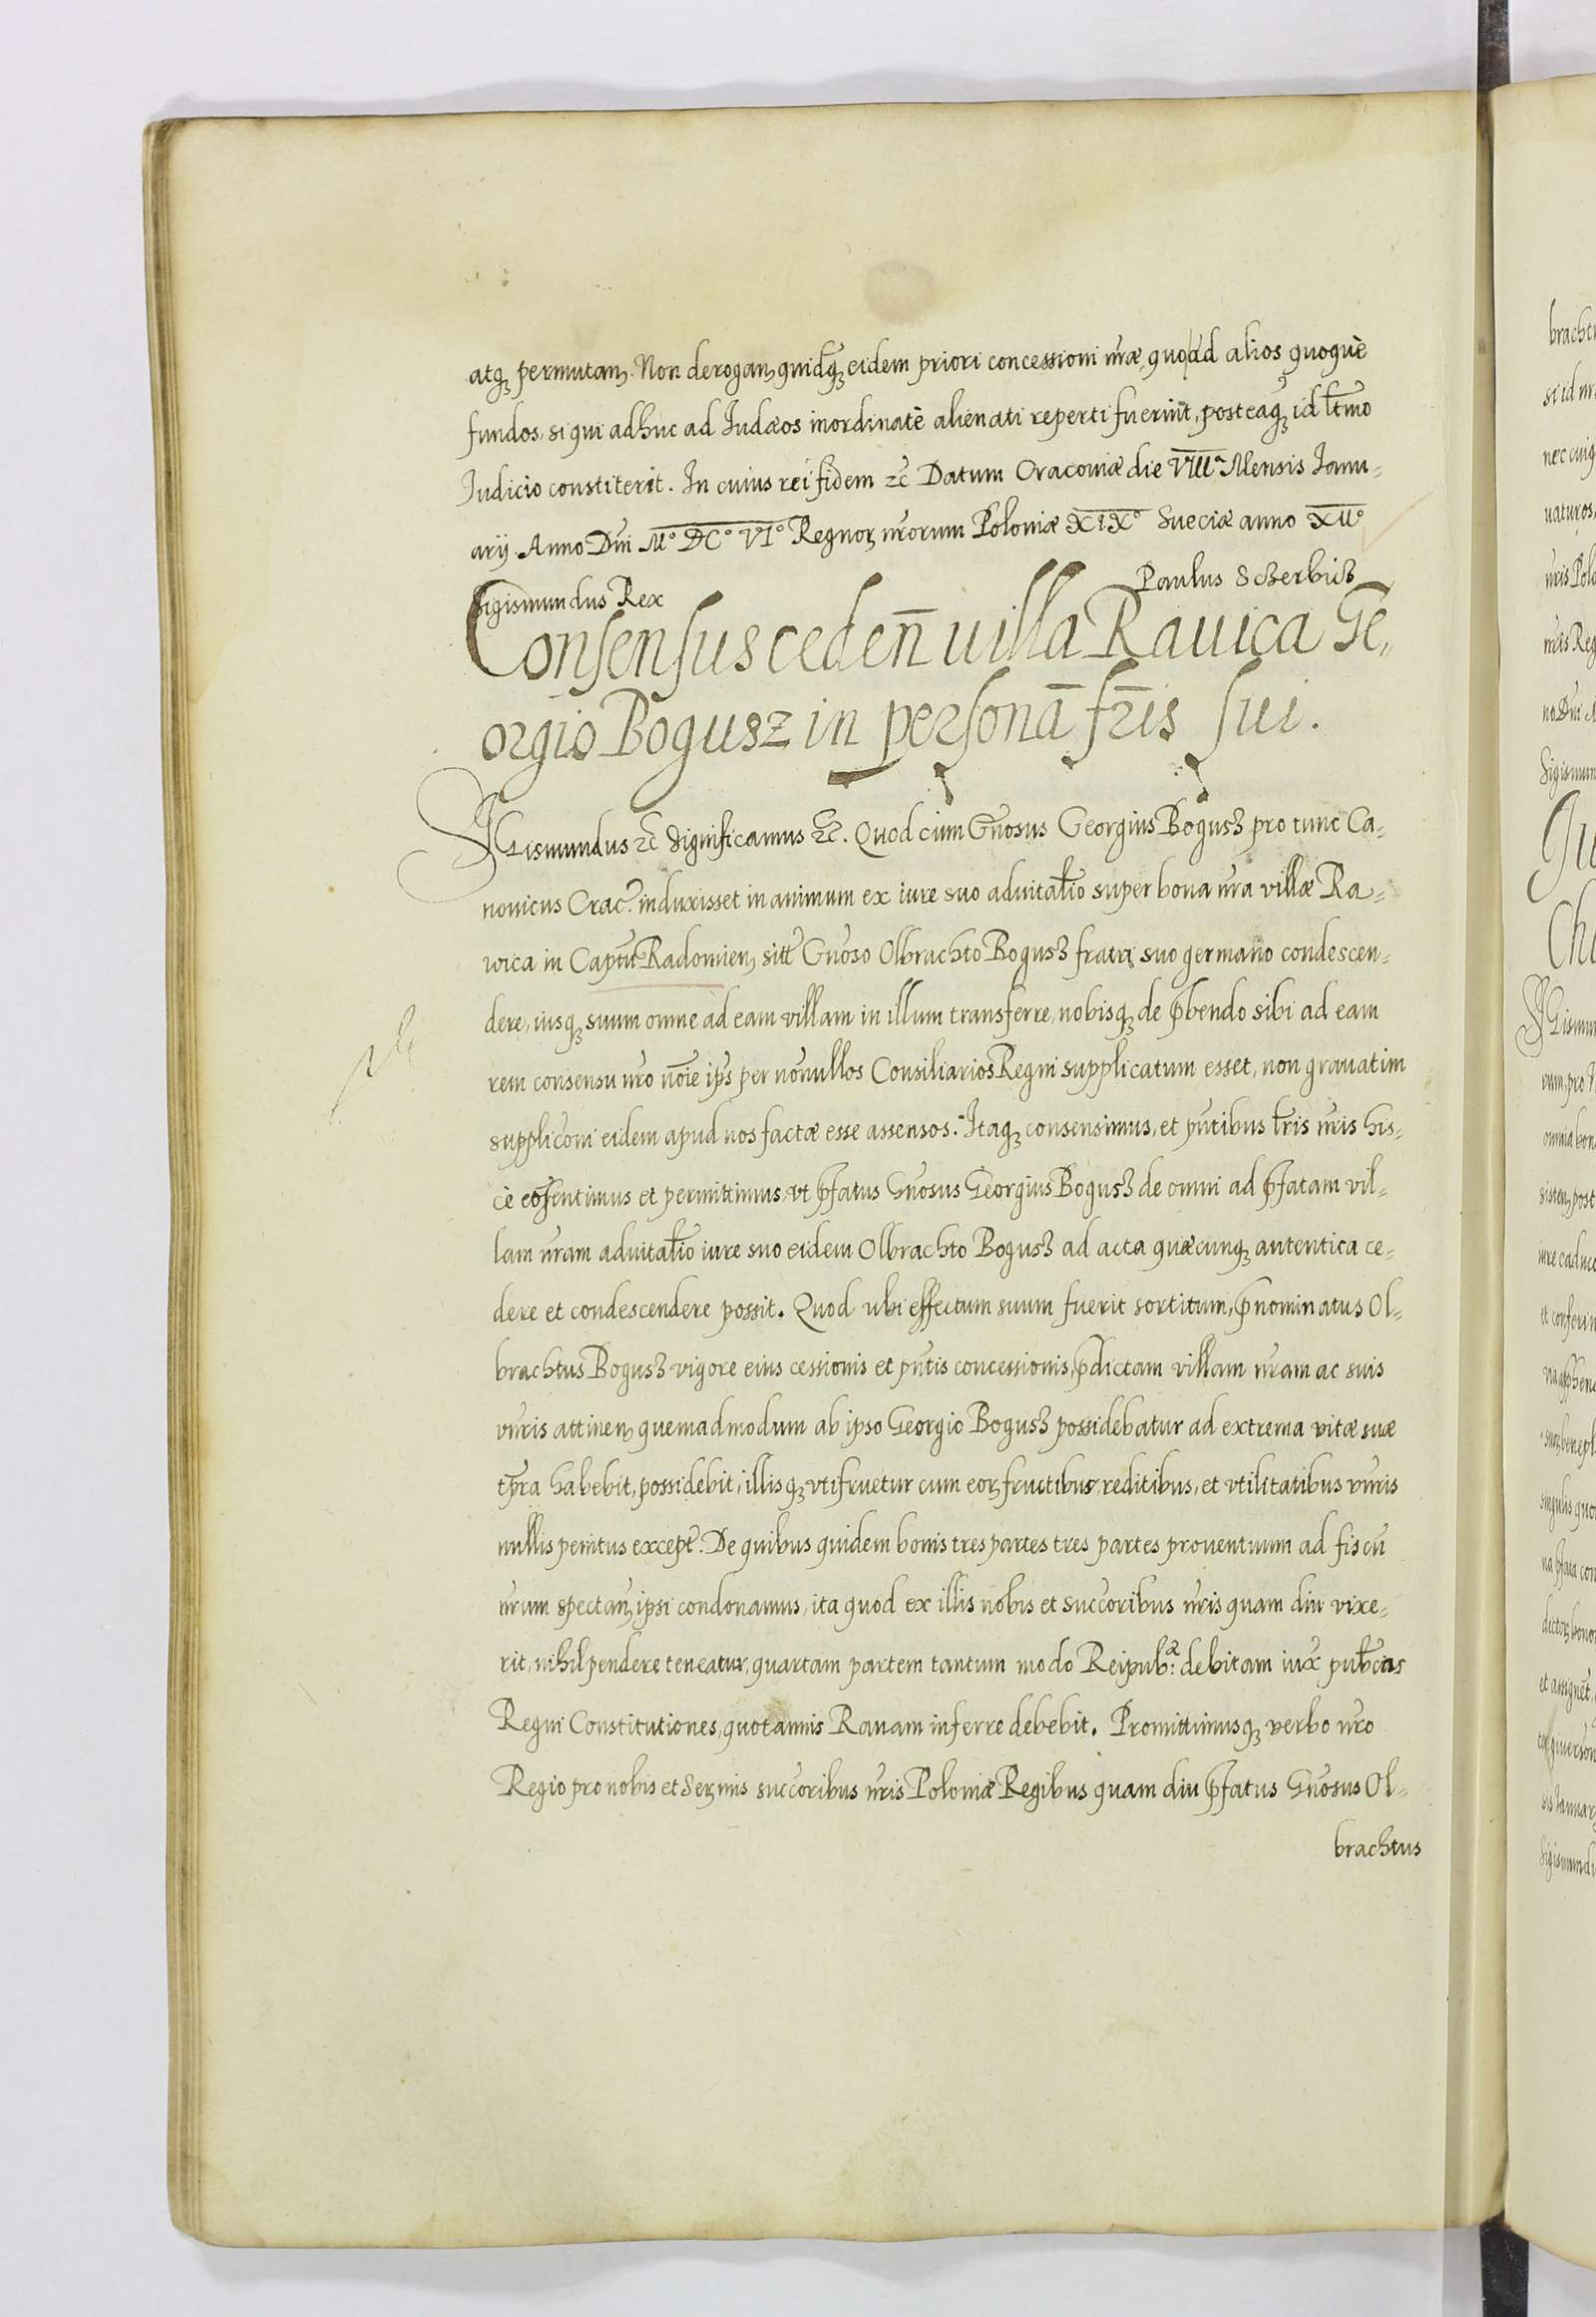 atqꝫ permutanꝫ. Non deroganꝫ quidq̃ꝫ eidem priori concessioni nr̃æ, quoad alios quoquè
fundos, si qui adhuc ad Iudæos inordinatè alienati reperti fuerint, posteaq̃ꝫ id lt̃mo
Iudicio constiterit. In cuius rei fidem ⁊c̃ Datum Cracouiæ die VIIIa Mensis Ianu-
arij Anno Dñi Mº DCº VIº Regnoꝝ nr̃orum Poloniæ XIXº Sueciæ anno XIIº
Sigismundus Rex
Paulus Sczerbicz
Consensus ceden̄ uilla Rauica Ge-
orgio Bogusz in personā fr̄is sui.
SIGismundus ⁊c̃ Significamus ⁊c̃. Quod cùm Gñosus Georgius Bogusz pro tunc Ca-
nonicus Crac̃. induxisset in animum ex iure suo aduital̃io super bona nr̃a villæ Ra-
wica in Captũ Radomienꝫ sitĩ Gñoso Olbrachto Bogusz fratri suo germano condescen-
dere, iusqꝫ suum omne ad eam villam in illum transferre, nobisqꝫ de p̃bendo sibi ad eam
rem consensu nr̃o nõie ip̃s per nõnullos Consiliarios Regni supplicatum esset, non grauatim
supplicõni eidem apud nos factæ esse assensos. Itaqꝫ consensimus, et pñtibus lr̃is nr̃is his-
cè cõsentimus et permittimus, vt p̃fatus Gñosus Georgius Bogusz de omni ad p̃fatam vil-
lam nr̃am aduital̃io iure suo eidem Olbrachto Bogusz ad acta quæcunqꝫ autentica ce-
dere et condescendere possit. Quod ubi effectum suum fuerit sortitum, p̃nominatus Ol-
brachtus Bogusz vigore eius cessionis et pñtis concessionis, p̃dictam villam nr̃am ac suis
vnĩris attinenꝫ quemadmodum ab ipso Georgio Bogusz possidebatur ad extrema vitæ suæ
tp̃ra habebit, possidebit, illisqꝫ vtifruetur cum eoꝝ fructibus, reditibus, et vtilitatibus vnĩris
nullis penitus except̃. De quibus quidem bonis tres partes tres partes prouentuum ad fiscũ
nr̃um spectanꝫ ipsi condonamus, ita quod ex illis nobis et succõribus nr̃is quam diu vixe-
rit, nihil pendere teneatur, quartam partem tantum modo Reipub.æ debitam iux̃ pub̃cas
Regni Constitutiones, quotannis Rauam inferre debebit. Promittimusqꝫ verbo nr̃o
Regio pro nobis et Serꝫmis succõribus nr̃is Poloniæ Regibus quam diu p̃fatus Gñosus Ol-
brachtus